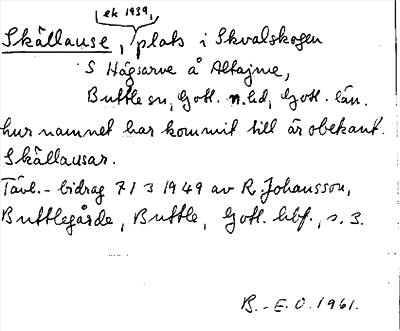 ek 1939,
Skällause, plats i Skvalskogen
S Hägsarve å Altajme,
Buttle sn, Gotl. n.hd, Gotl. län.
hur namnet har kommit till är obekant.
Skällausar.
Tävl.-bidrag 7/3 1949 av R. Johansson,
Buttlegårde, Buttle, Gotl. hbf., s. 3.
B.-E.O. 1961.